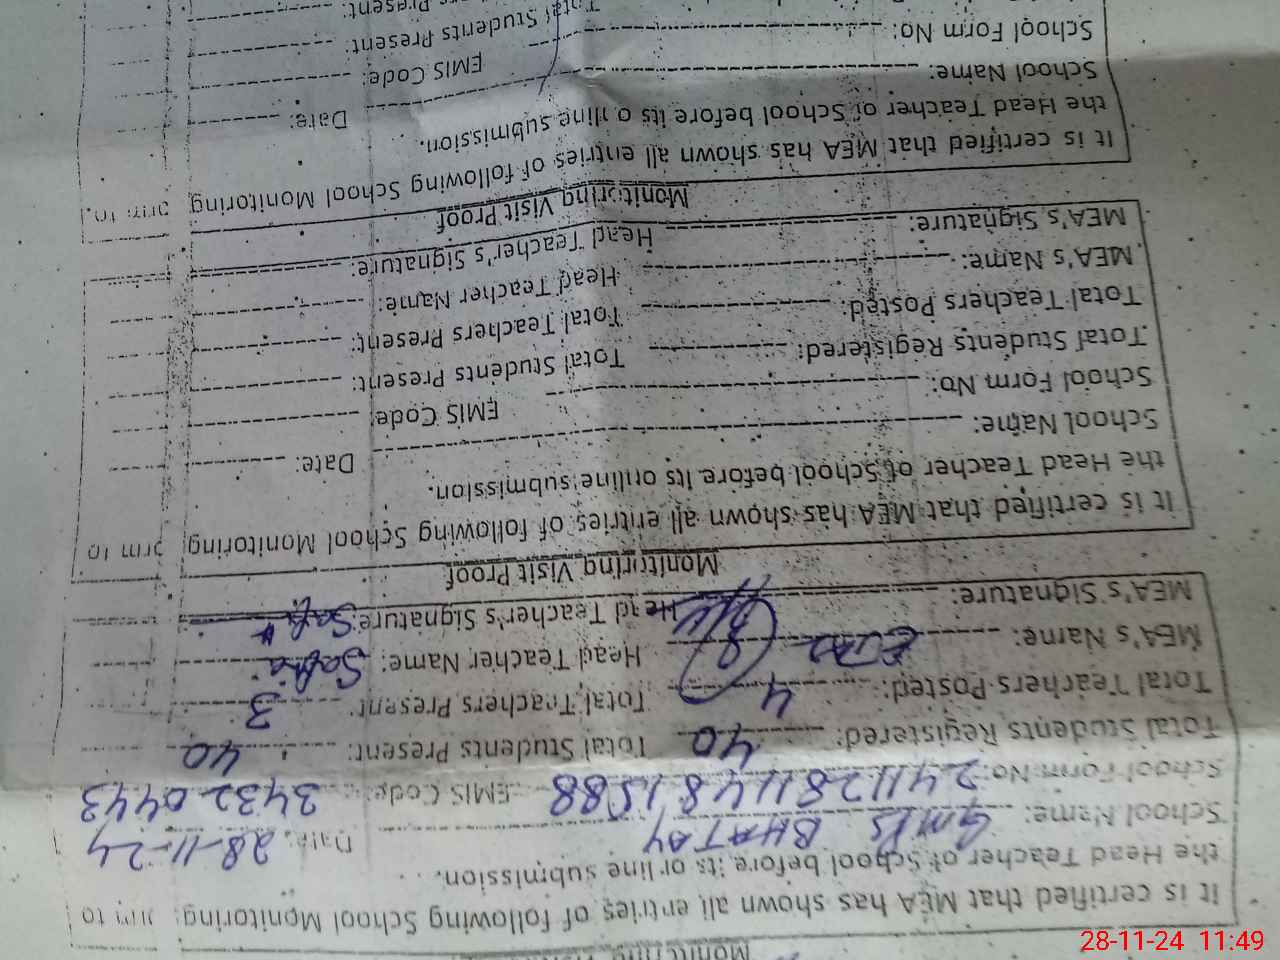 Monitoring
It is certified that MEA has shown all entries of following School Monitoring to
the Head Teacher of School before its or line submission.
School Name: GMPS BHATAY Date: 28-11-24
School Form No: 24112811481588 EMIS Code: 34320443
Total Students Registered: 40 Total Students Present: 40
Total Teachers Posted: 4 Total Teachers Present: 3
MEA's Name: Head Teacher Name: Safia
MEA's Signature: Head Teacher's Signature: Safia
Monitoring Visit Proof
It is certified that MEA has shown all entries of following School Monitoring orm to
the Head Teacher of School before its online submission.
School Name: Date:
School Form No: EMIS Code:
Total Students Registered: Total Students Present:
Total Teachers Posted: Total Teachers Present:
MEA's Name: Head Teacher Name:
MEA's Signature: Head Teacher's Signature:
Monitoring Visit Proof
It is certified that MEA has shown all entries of following School Monitoring orm to
the Head Teacher of School before its online submission.
School Name: Date:
School Form No: EMIS Code:
Total Students Present:
28-11-24 11:49